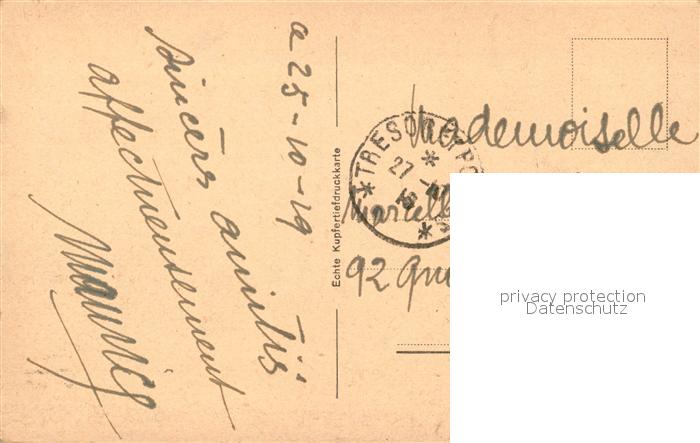 a 25-10-19
sincères amitiés
affectueusement
Maurice
Echte Kupfertiefdruckkarte
TRESOR
27
19
Mademoiselle
Marcell
92
privacy protection
Datenschutz